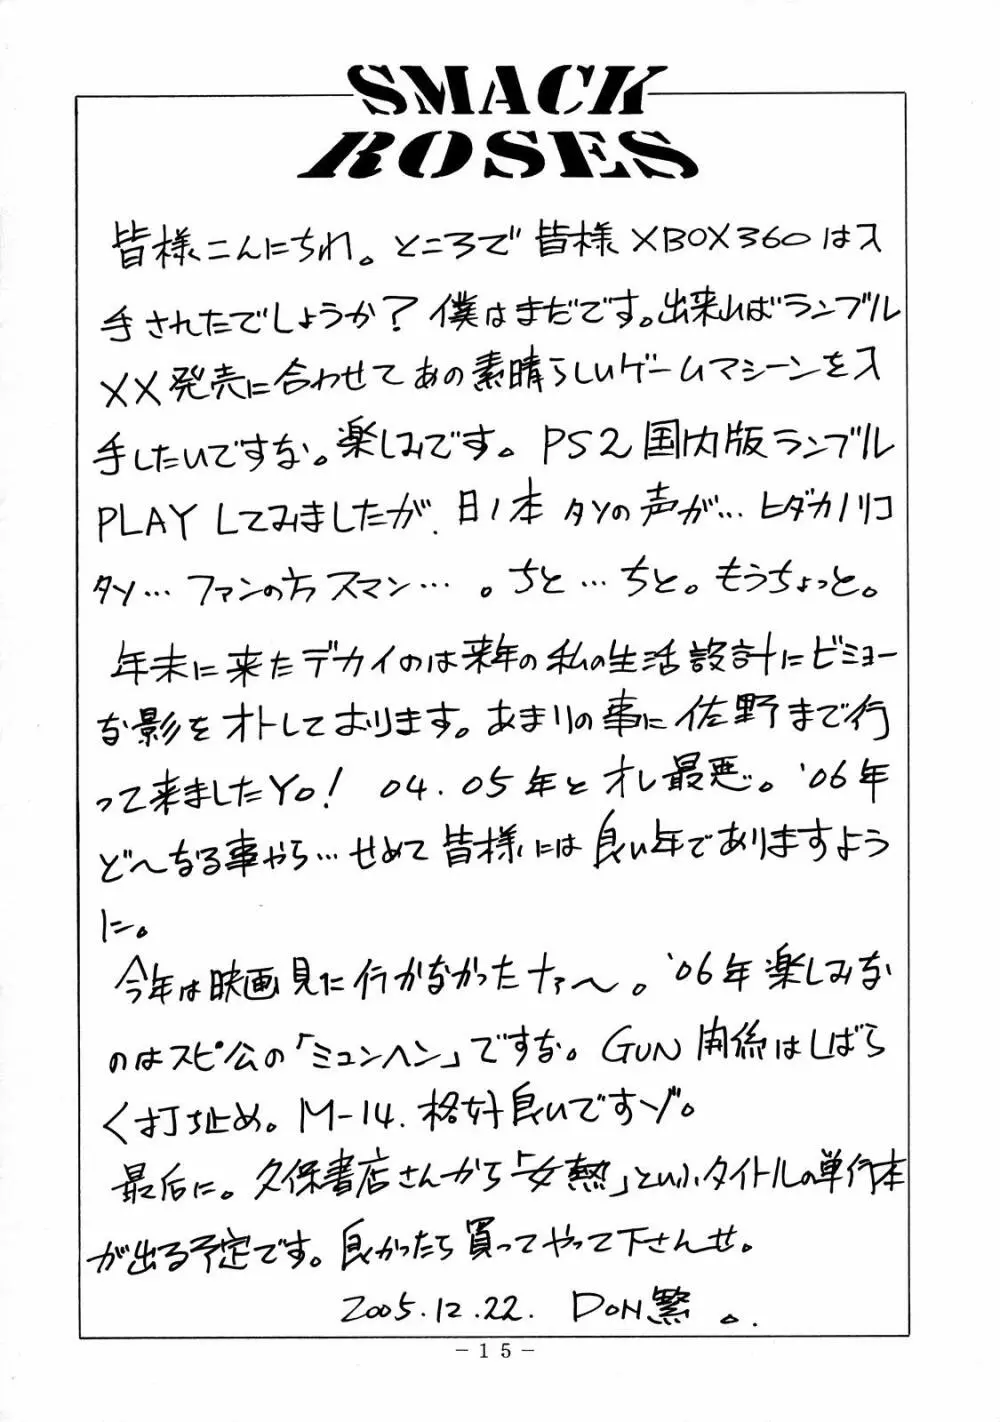 SMACK
ROSES
皆様こんにちわ。ところで皆様XBOX360は入
手されたでしょうか?僕はまだです。出来ればランブル
XX発売に合わせてあの素晴らしいゲームマシーンを入
手したいですな。楽しみです。PS2国内版ランブル
PLAYしてみましたが、日ノ本タソの声が…ヒダカノリコ
タソ…ファンの方スマン…。ちと…ちと。もうちょっと。
年末に来たデカイのは来年の私の生活設計にビミョー
な影をオトしております。あまりの事に佐野まで行
って来ましたYo! 04.05年とオレ最悪。'06年
ど〜なる事やら…せめて皆様には良い年でありますよう
に。
今年は映画見に行かなかったナァ〜。'06年楽しみな
のはスピ公の「ミュンヘン」ですな。GUN関係はしばら
く打ち止め。M-14.格好良いですゾ。
最后に。久保書店さんから「女熱」といふタイトルの単行本
が出る予定です。良かったら買ってやって下さんせ。
2005.12.22. DON繁。.
-15-